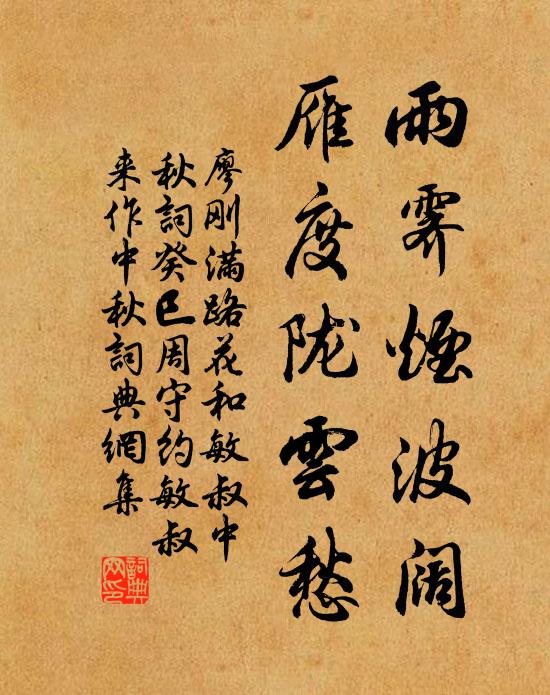 雨霁煙波阔
雁度陇雲愁
廖刚满路花和敏叔中
秋詞癸巳周守约敏叔
来作中秋詞典網集
詞典网印